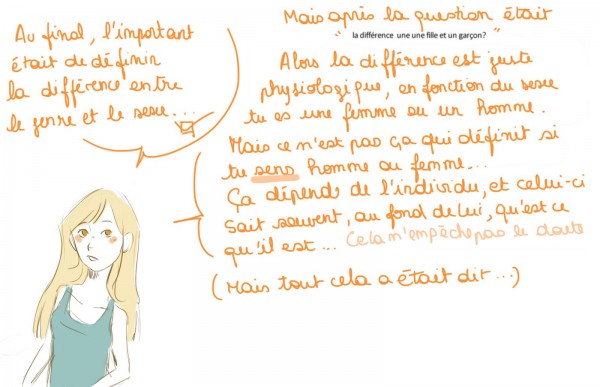 Au final, l'important
était de définir
la différence entre
le genre et le sexe...
Mais après la question était
" la différence une une fille et un garçon? "
Alors la différence est juste
physiologique, en fonction du sexe
tu es une femme ou un homme.
Mais ce n'est pas ça qui définit si
tu sens homme ou femme...
Ça dépend de l'individu, et celui-ci
sait souvent, au fond de lui, qu'est ce
qu'il est... Cela n'empêche pas le doute
(Mais tout cela a était dit...)